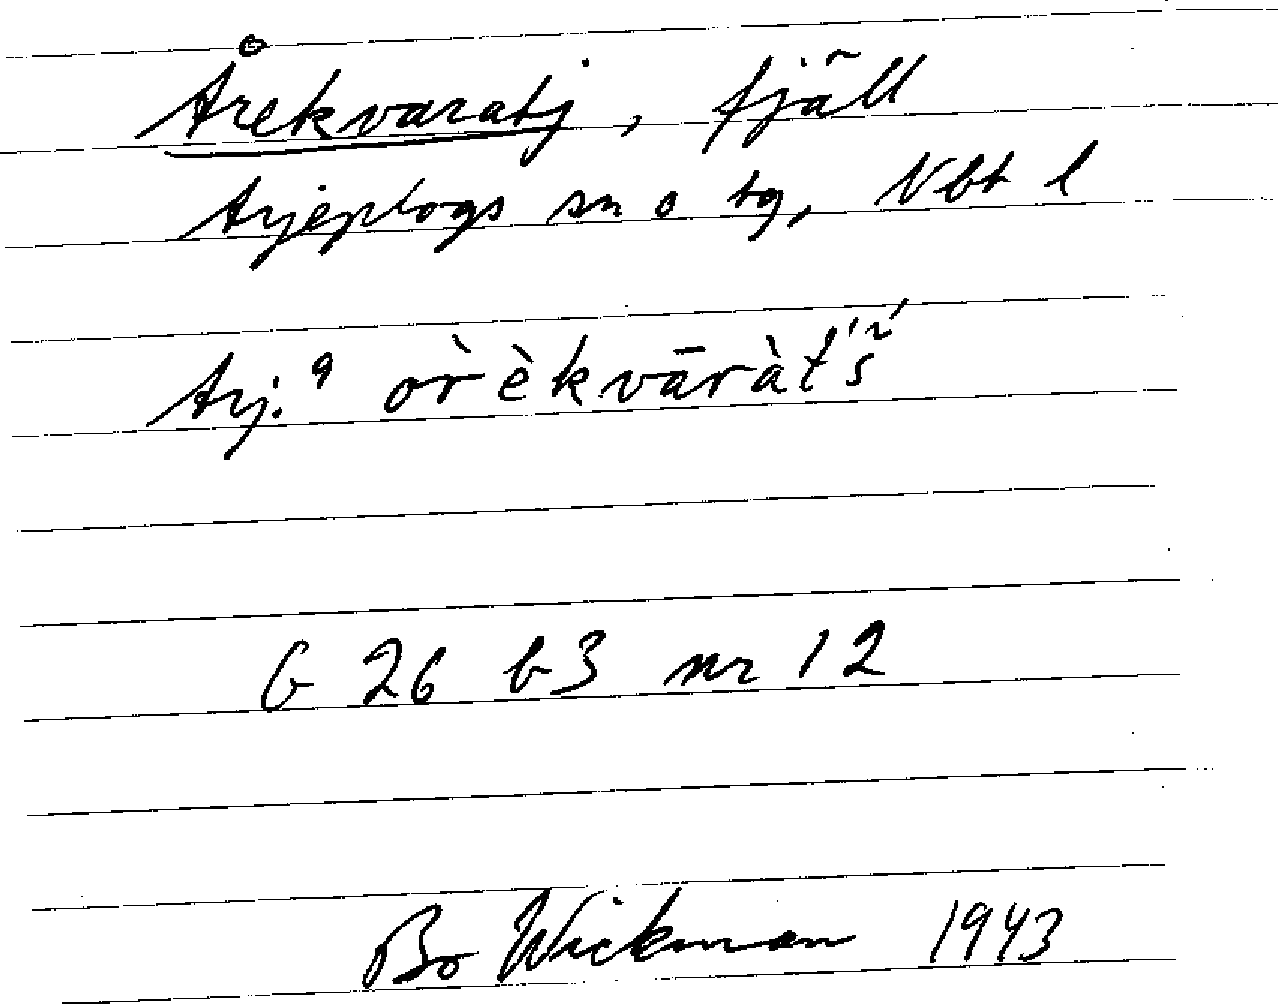 Årekvaratj, fjäll
Arjeplogs sn o tg, Nbt l
Arj.⁹ or̀èkvāràt́š́
G 26 b3 nr 12
Bo Wickman 1943